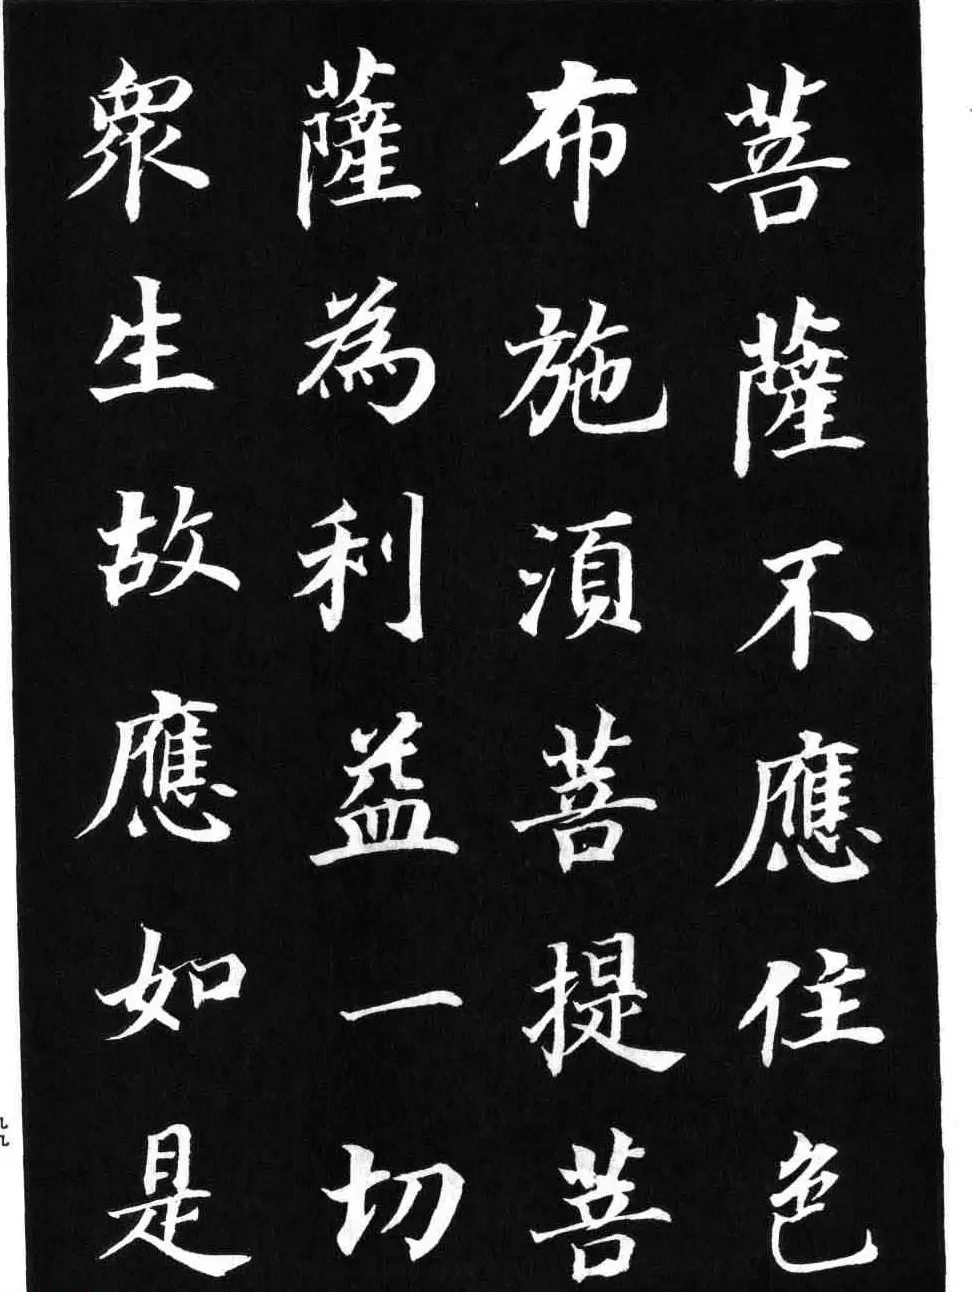 菩薩不應住色
布施湏菩提菩
薩為利益一切
衆生故應如是
九九